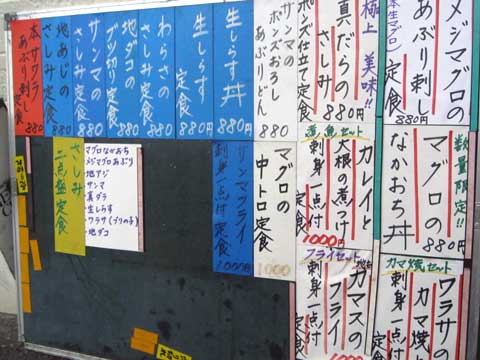 数量限定!!
メジマグロの
あぶり刺し
定食
880円
極上 美味!!
真だらの
ポンズ仕立て定食
880円
サンマの
ポンズおろし
あぶりどん
880
生しらす丼
880円
生しらす
定食
880
わらさの
さしみ定食
880
地ダコの
ブツ切り定食
880
サンマの
さしみ定食
880
地あじの
さしみ定食
880
本サワラ
あぶり刺し定食
880
マグロの
なかおち丼
880円
カレイと
大根の煮つけ
刺身一点付
定食
1000円
マグロの
中トロ定食
1000
サンマフライ
刺身一点付定食
1000円
・マグロなかおち
・メジマグロあぶり
・地アジ
・サンマ
・真ダラ
・生しらす
・ワラサ(ブリの子)
・地ダコ
さしみ
二点盛定食
カマ焼セット
ワラサの
カマ焼
刺身一点付
フライセット
カマスの
フライ
刺身一点付
定食